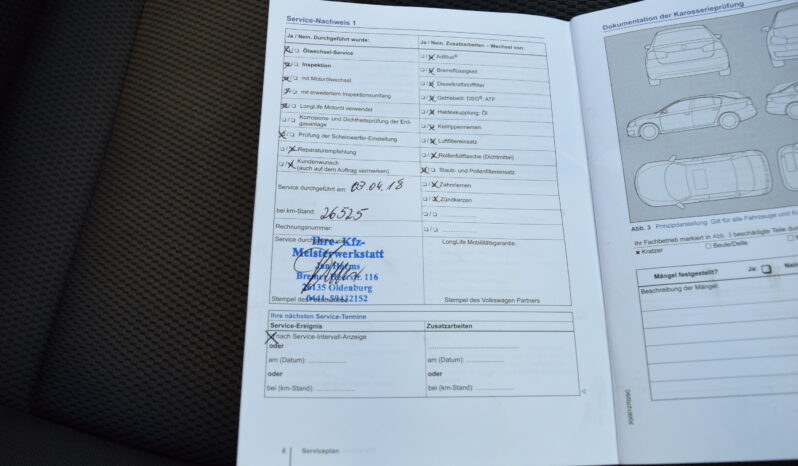 Service-Nachweis 1
Ja / Nein. Durchgeführt wurde:
Ölwechsel-Service
Inspektion
mit Motorölwechsel
mit erweitertem Inspektionsumfang
LongLife Motoröl verwendet
Korrosions- und Dichtheitsprüfung der Erd-
gasanlage
Prüfung der Scheinwerfer-Einstellung
Reparaturempfehlung
Kundenwunsch
(auch auf dem Auftrag vermerken)
Service durchgeführt am: 03.04.18
bei km-Stand: 26525
Rechnungsnummer:
Service durchgeführt
Ihre Kfz-
Meisterwerkstatt
Jan Harms
Bremer Heerstr. 116
26135 Oldenburg
Stempel des
Ja / Nein. Zusatzarbeiten – Wechsel von:
AdBlue®
Bremsflüssigkeit
Dieselkraftstofffilter
Getriebeöl: DSG®, ATF
Haldexkupplung: Öl
Keilrippenriemen
Luftfiltereinsatz
Reifenfüllflasche (Dichtmittel)
Staub- und Pollenfiltereinsatz
Zahnriemen
Zündkerzen
LongLife Mobilitätsgarantie:
Stempel des Volkswagen Partners
Ihre nächsten Service-Termine
Service-Ereignis
Zusatzarbeiten
nach Service-Intervall-Anzeige
oder
am (Datum):
am (Datum):
oder
oder
bei (km-Stand):
bei (km-Stand):
6 Serviceplan
Dokumentation der Karosserieprüfung
Abb. 3 Prinzipdarstellung. Gilt für alle Fahrzeuge und
Ihr Fachbetrieb markiert in Abb. 3 beschädigte Teile
Kratzer
Beule/Delle
Mängel festgestellt?
Ja:
Nein
Beschreibung der Mängel: